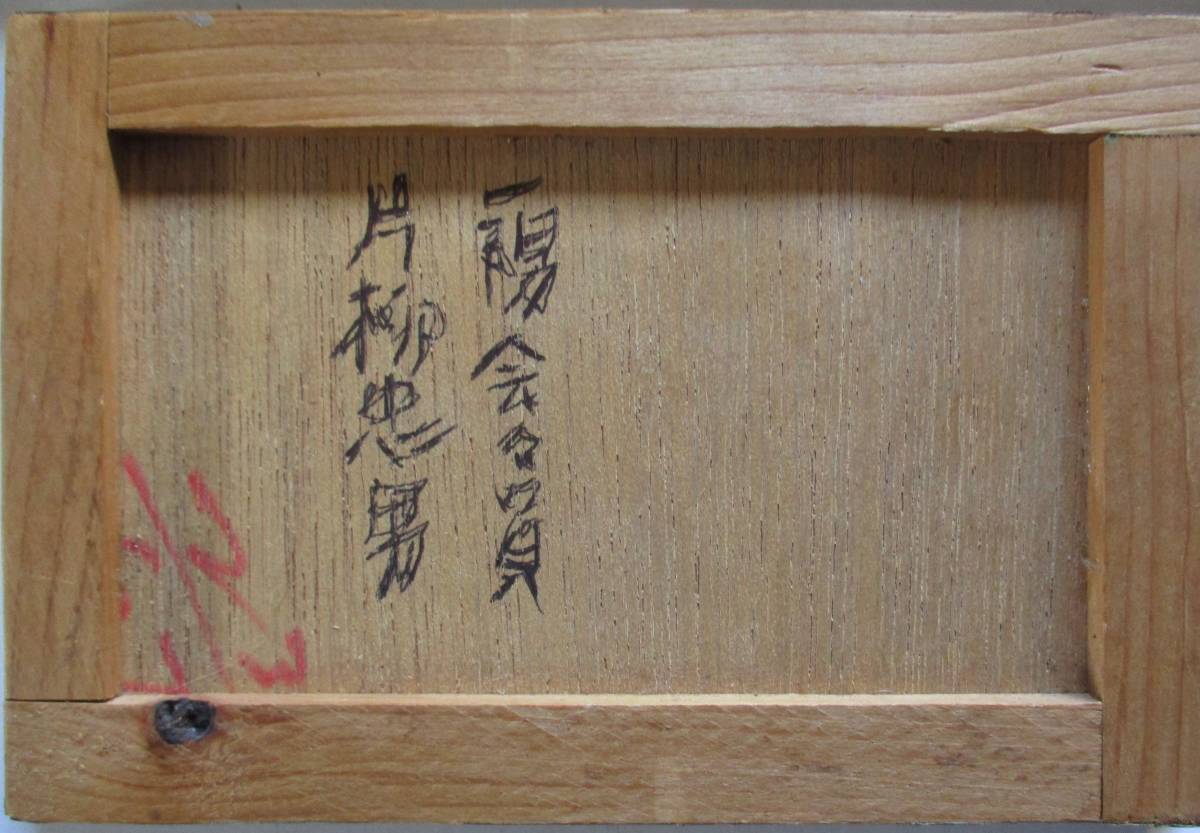 一陽会々員
片柳忠男